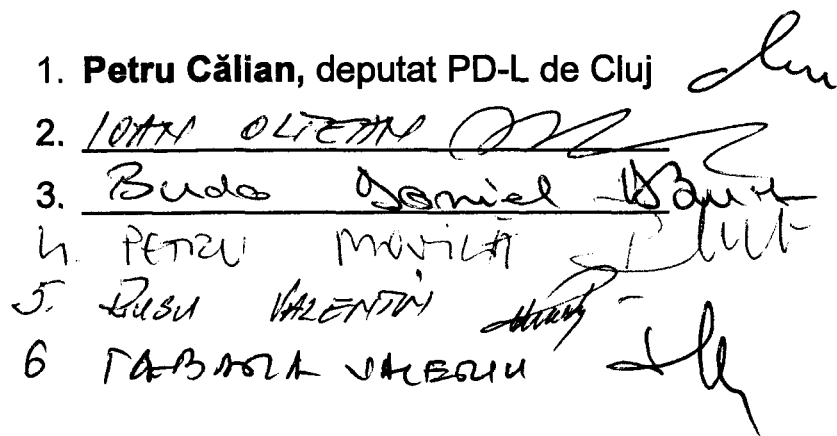 1. Petru Călian, deputat PD-L de Cluj
2. IOAN OLTEAN
3. Buda Daniel
4. PETRU MOVILĂ
5. RUSU VALENTIN
6 TABARA VALERIU